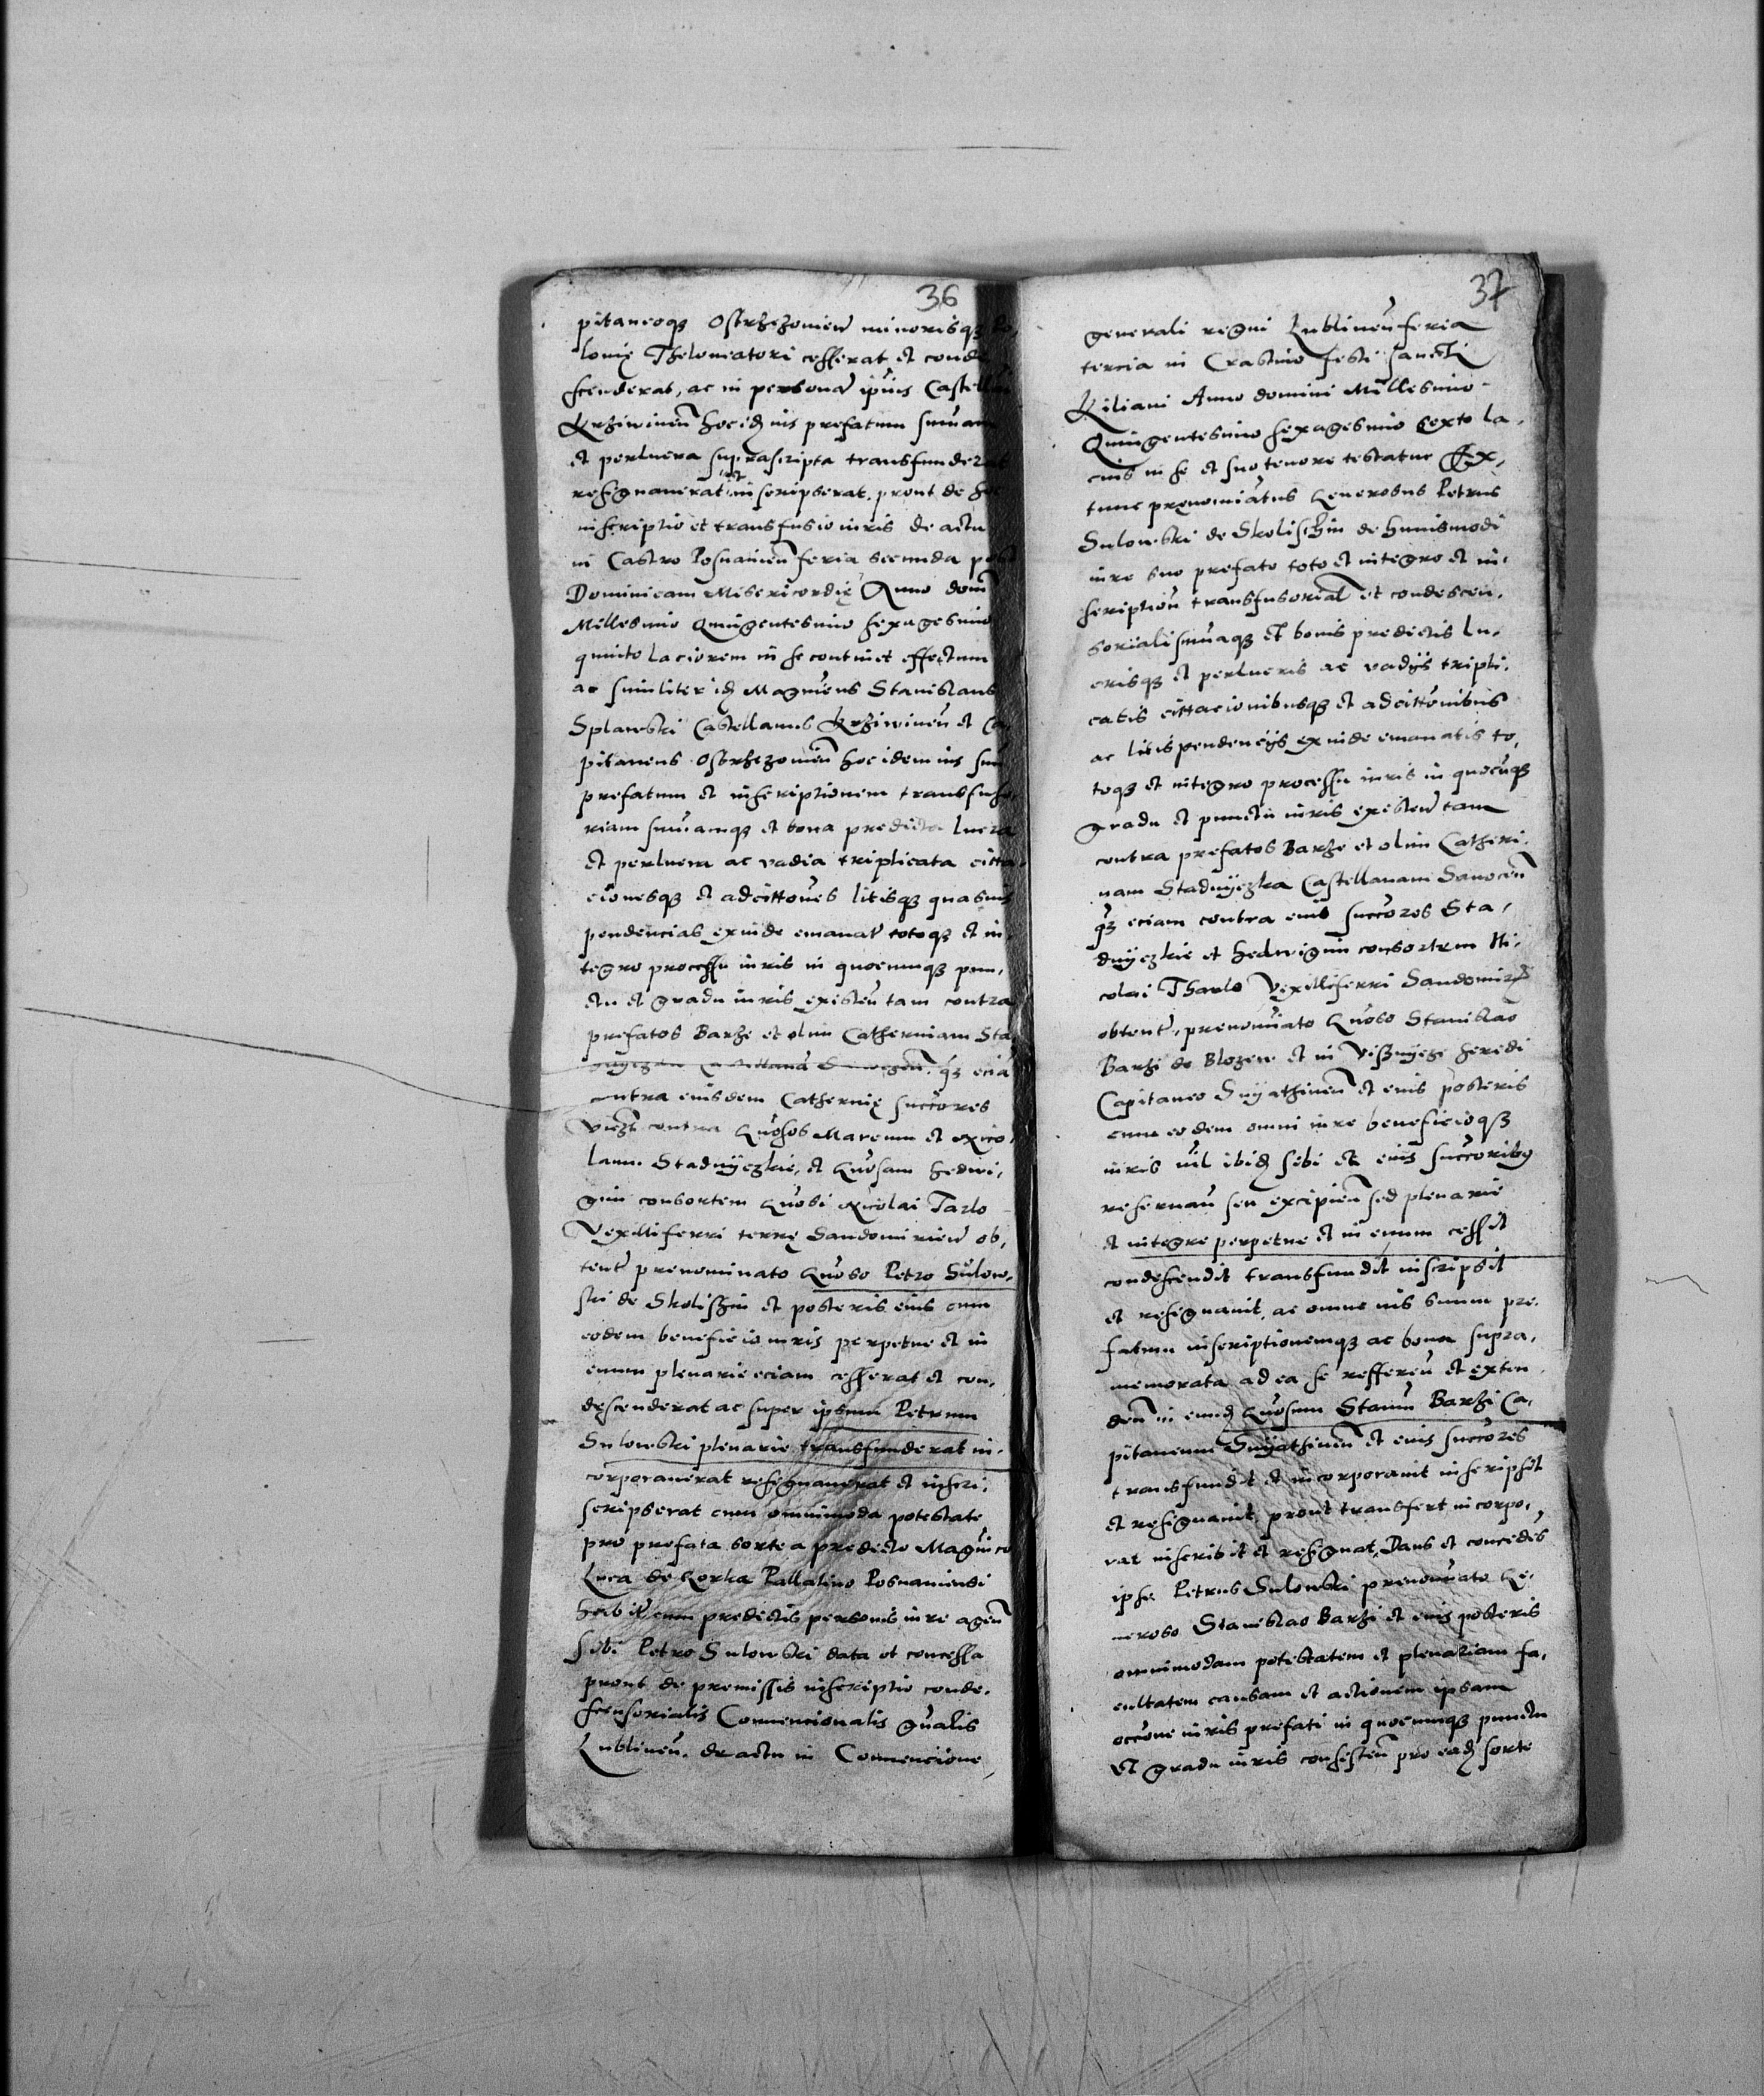 36
pitaneoq3 Ostrhezomien minorisq3 Po,
lonię Theloneatori cesserat et conde
scenderat, ac in persona ipius Castell
Krziwinen hoc id ius prefatum summam
et perlucra suprascripta transfunderat
resignauerat et inscripserat. prout de hoc
inscriptio et transfusio iuris de actu
in Castro Posnanien feria secunda post
Dominicam Misericordię Anno dom
Millesimo Quingentesimo sexagesimo
quinto laciorem in se continet effectum
ac similiter id Magnicus Stanislaus
Splawski Castellanus Krziwinen et Ca
pitaneus Ostrhezomien hoc idem ius suu
prefatum et inscriptionem transfuso,
riam summamq3 et bona predicta lucra
et perlucra ac vadia triplicata citta
cionesq3 et adcittones litisq3 quasuis
pendencias exinde emanat totoq3 et in
tegro processu iuris in quocumq3 pun,
ctu et gradu iuris existen tam contra
prefatos Barze et olim Catherinam Sta
q3 ecia
contra eiusdem Catherinę succores
viczt contra Gnosos Marcum et Nico,
laum Stadnyczkie, et Gnosam Hedwi,
gim consortem Gnosi Nicolai Tarlo
Vexilliferri terrę Sandomirien ob,
tent prenominato Gnoso Petro Sulow,
ski de Skolischin et posteris eius cum
eodem beneficio iuris perpetue et in
euum plenarie eciam cesserat et con,
descenderat ac super ipsum Petrum
Sulowski plenarie transfunderat in,
corporauerat resignauerat et inscri,
scripserat cum omnimoda potestate
pro prefata sorte a predicto Magnico
Luca de Gorka Pallatino Posnaniensi
habit cum predictis personis iure agen
sibi Petro Sulowski data et concessa
prout de premissis inscriptio conde.
scensorialis Conuencionalis gnalis
Lublinen. de actu in Conuencione
37
generali regni Lublinen feria
tercia in Crastino festi sancti
Kiliani Anno domini Millesimo
Quingentesimo sexagesimo sexto la,
cius in se et suo tenore testatur Ex,
tunc prenominatus Generosus Petrus
Sulowski de Skolischin de huiusmodi
iure suo prefato toto et integro et in,
scription transfusorial et condescen,
soriali summaq3 et bonis predictis lu,
crisq3 et perlucris ac vadijs tripli,
catis cittacionibusq3 et adcittonibus
ac litispendencijs exinde emanatis to,
toq3 et integro processu iuris in quocuq3
gradu et punctu iuris existen tam
contra prefatos Barze et olim Catheri,
nam Stadnyczka Castellanam Sanocen
q3 eciam contra eius succores Sta,
dnyczkie et Hedwigim consortem Ni,
colai Tharlo Vexilliferri Sandomir
obtent, prenominato Gnoso Stanislao
Barzi de Blozew et in Visznycze heredi
Capitaneo Snyathinen et eius posteris
cum eodem omni iure beneficioq3
iuris nil ibid sibi et eius succoribus
reseruan seu excipien sed plenarie
et integre perpetue et in euum cessit
condescendit transfundit inscripsit
et resignauit, ac omne ius suum pre,
fatum inscriptionemq3 ac bona supra,
memorata ad ea se refferen et exten
den in eund Gnosum Stanum Barzi Ca,
pitaneum Snyathinen et eius succores
transfundit et incorporauit inscripsit
et resignauit, prout transfert incorpo,
rat inscribit et resignat, Dans et concedes
ipse Petrus Sulowski prenominato Ge,
neroso Stanislao Barzi et eius posteris
omnimodam potestatem et plenariam fa,
cultatem causam et actionem ipsam
occone iuris prefati in quocumq3 punctu
et gradu iuris consisten pro ead sorte